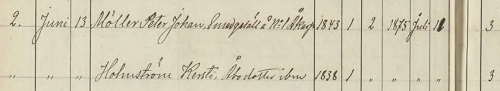 2. Juni 13 Möller Peter Johan, Smedgesäll å No 1 Åkarp 1843 1 2 1875 Juli 11 3
" " Holmström Kersti. Åbodotter ibm 1838 1 " " " " 3